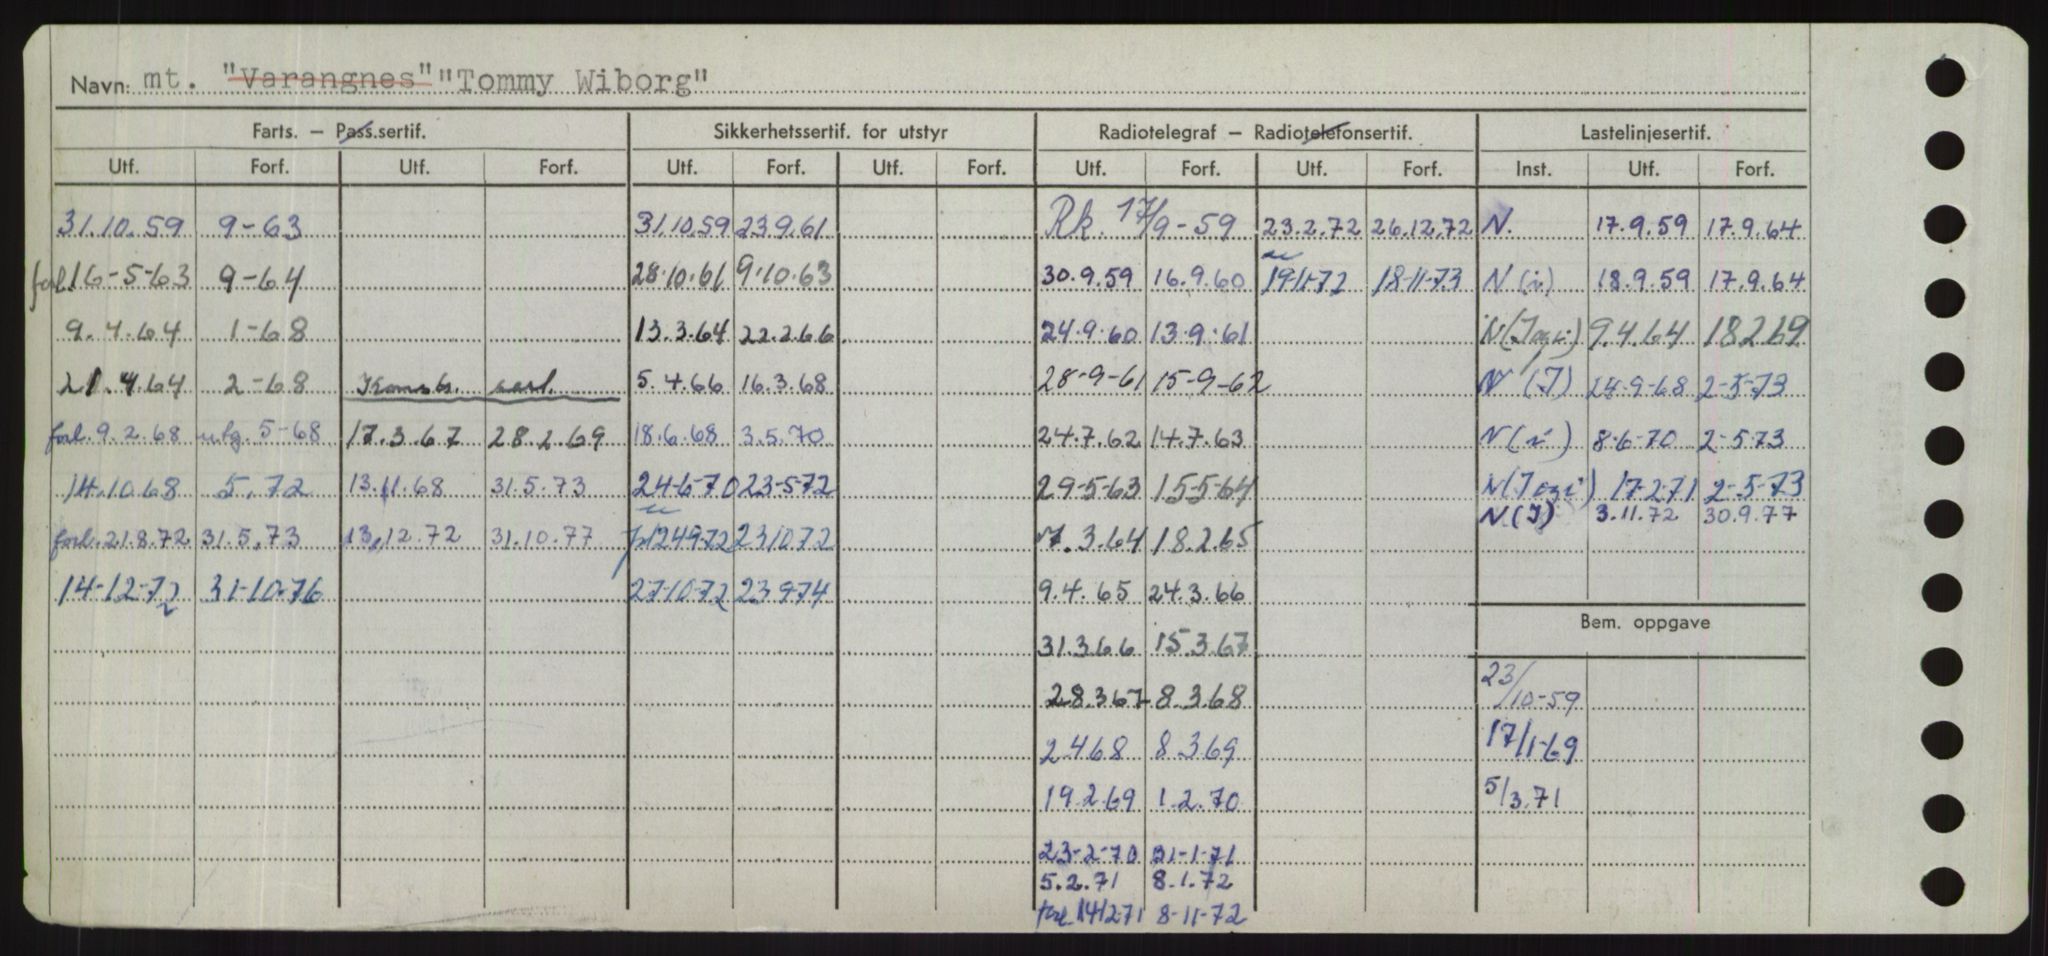 Navn: mt. "Varangnes" "Tommy Wiborg"
Farts. – Pass.sertif. Sikkerhetssertif. for utstyr Radiotelegraf – Radiotelefonsertif. Lastelinjesertif.
Utf. Forf. Utf. Forf. Utf. Forf. Utf. Forf. Utf. Forf. Utf. Forf. Inst. Utf. Forf.
31.10.59 9-63 31.10.59 23.9.61 Rk. 17/9-59 23.2.72 26.12.72 N. 17.9.59 17.9.64
forl. 16-5-63 9-64 28.10.61 9.10.63 30.9.59 16.9.60 19-11-72 18-11-73 N (i) 18.9.59 17.9.64
9.4.64 1-68 13.3.64 22.2.66 24.9.60 13.9.61 9.4.64 18269
21.4.64 2-68 5.4.66 16.3.68 28-9-61 15-9-62 N (I) 24-9-68 2-5-73
forl. 9.2.68 utg. 5-68 17.3.67 28.2.69 18.6.68 3.5.70 24.7.62 14.7.63 N (i) 8-6-70 2-5-73
14.10.68 5.72 13.11.68 31.5.73 24-6-70 23-5-72 29-5-63 15-5-64 17-2-71 2-5-73
N (I) 3.11.72 30.9.77
forl. 21.8.72 31.5.73 13.12.72 31.10.77 24972 231072 .3.64 18.2.65
14-12-72 31-10-76 27-10-72 23974 9.4.65 24.3.66
Bem. oppgave
31.3.66 15.3.67
28.3.67 8.3.68 23/10-59
2.4.68 8.3.69 17/1-69
19.2.69 1.2.70 5/3.71
23-2-70 31-1-71
5.2.71 8.1.72
forl. 141271 8-11-72